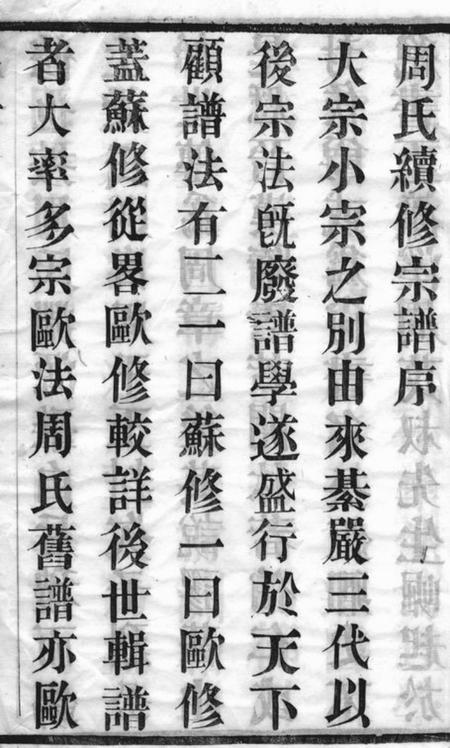 周氏續修宗譜序
大宗小宗之別由來綦嚴三代以
後宗法旣廢譜學遂盛行於天下
顧譜法有二一曰蘇修一曰歐修
蓋蘇修從畧歐修較詳後世輯譜
者大率多宗歐法周氏舊譜亦歐